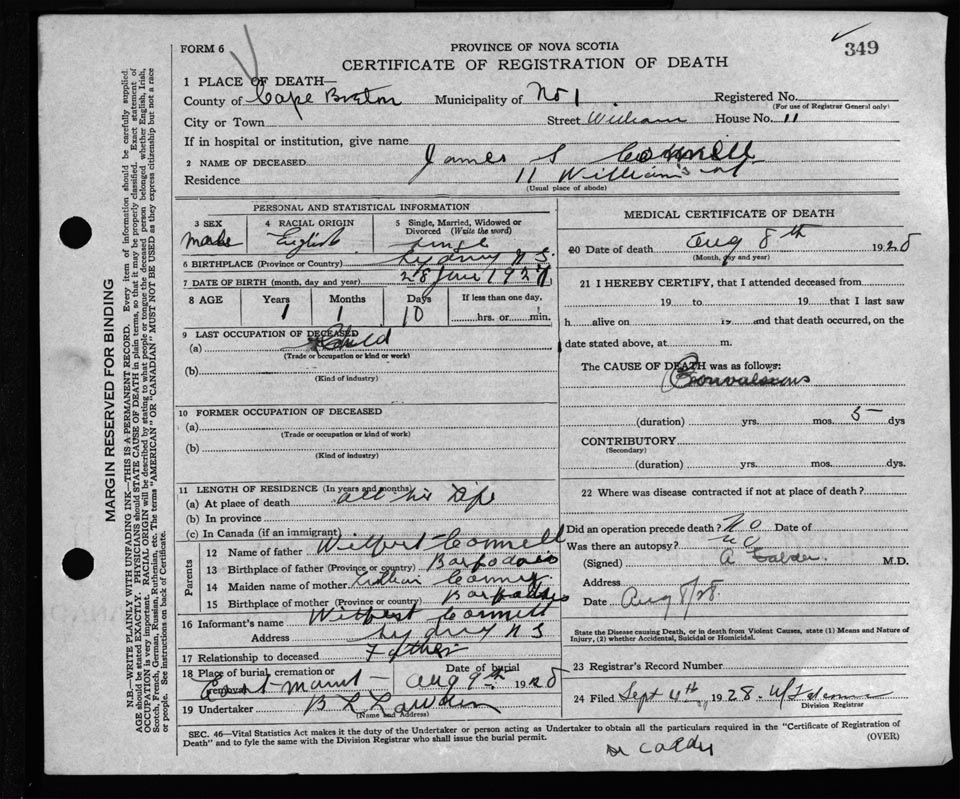 FORM 6
PROVINCE OF NOVA SCOTIA
349
CERTIFICATE OF REGISTRATION OF DEATH
1 PLACE OF DEATH—
County of Cape Breton Municipality of No 1 Registered No.
(For use of Registrar General only)
City or Town Street William House No. 11
If in hospital or institution, give name
2 NAME OF DECEASED James S
Residence 11 William's st
(Usual place of abode)
PERSONAL AND STATISTICAL INFORMATION
3 SEX
4 RACIAL ORIGIN
5 Single, Married, Widowed or Divorced (Write the word)
male English
6 BIRTHPLACE (Province or Country) Sydney N S.
7 DATE OF BIRTH (month, day and year) 28 June 1927
8 AGE Years Months Days If less than one day,
1 1 10 hrs. or min.
9 LAST OCCUPATION OF DECEASED
(a) Child
(Trade or occupation or kind or work)
(b)
(Kind of industry)
10 FORMER OCCUPATION OF DECEASED
(a)
(Trade or occupation or kind of work)
(b)
(Kind of industry)
11 LENGTH OF RESIDENCE (In years and months)
(a) At place of death all his life
(b) In province
(c) In Canada (if an immigrant)
Parents
12 Name of father Wilfort Connell
13 Birthplace of father (Province or country) Barbadoes
14 Maiden name of mother
15 Birthplace of mother (Province or country) Barbadoes
16 Informant's name Connell
Address Sydney N S
17 Relationship to deceased Father
18 Place of burial, cremation or removal Date of burial
Mount — Aug 9th 1928
19 Undertaker
(Name and Address)
MEDICAL CERTIFICATE OF DEATH
20 Date of death Aug 8th 1928
(Month, day and year)
21 I HEREBY CERTIFY, that I attended deceased from
19 to 19 that I last saw
h alive on 19 and that death occurred, on the
date stated above, at m.
The CAUSE OF DEATH was as follows:
Convalssions
(duration) yrs. mos. 5 dys
CONTRIBUTORY
(Secondary)
(duration) yrs. mos. dys.
22 Where was disease contracted if not at place of death?
Did an operation precede death? No Date of
Was there an autopsy? No
(Signed) A Calder M.D.
Address
Date Aug 8/28.
State the Disease causing Death, or in death from Violent Causes, state (1) Means and Nature of
Injury, (2) whether Accidental, Suicidal or Homicidal.
23 Registrar's Record Number
24 Filed Sept 4th 1928.
Division Registrar
SEC. 46—Vital Statistics Act makes it the duty of the Undertaker or person acting as Undertaker to obtain all the particulars required in the "Certificate of Registration of
Death" and to fyle the same with the Division Registrar who shall issue the burial permit.
(OVER)
MARGIN RESERVED FOR BINDING
N.B.—WRITE PLAINLY WITH UNFADING INK—THIS IS A PERMANENT RECORD. Every item of information should be carefully supplied.
AGE should be stated EXACTLY. PHYSICIANS should STATE CAUSE OF DEATH in plain terms, so that it may be properly classified. Exact statement of
OCCUPATION is very important. RACIAL ORIGIN will be described by stating to what people or tongue the deceased person belonged whether English, Irish,
Scotch, French, German, Russian, Ruthenian, etc. The terms "AMERICAN" OR "CANADIAN" MUST NOT BE USED as they express citizenship but not a race
or people. See instructions on back of Certificate.